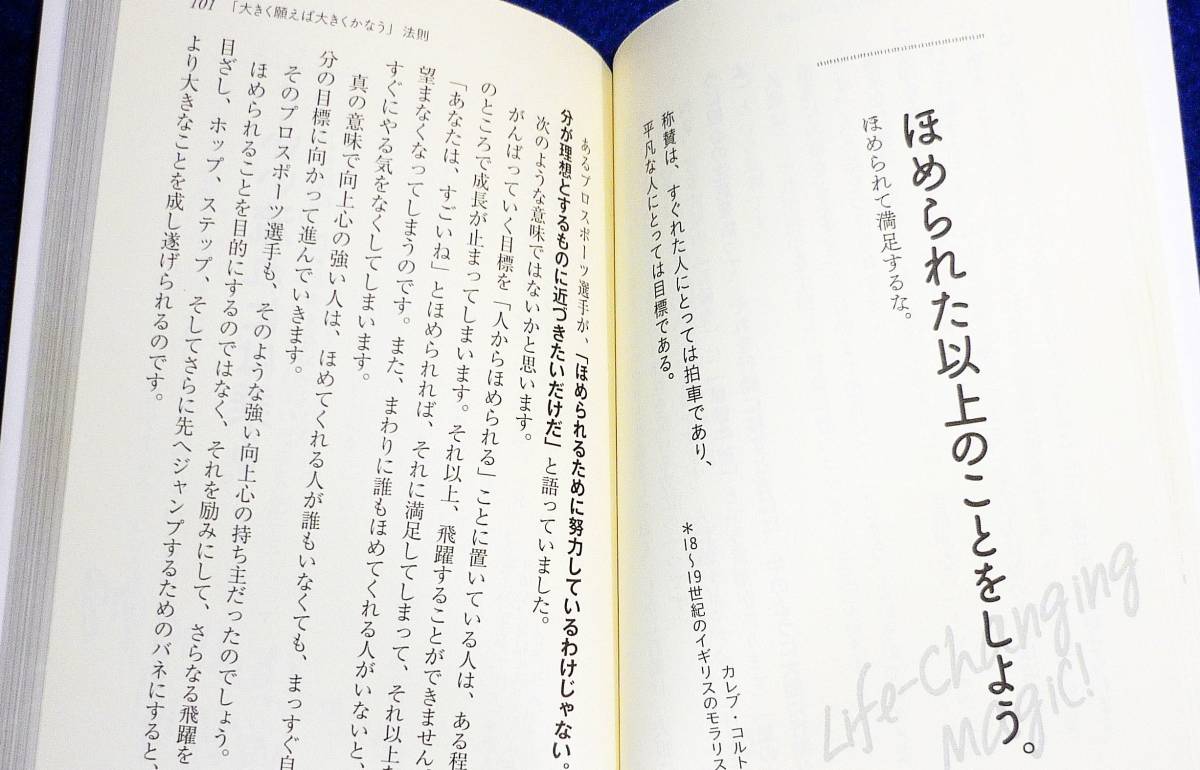 ほめられた以上のことをしよう。
ほめられて満足するな。
称賛は、すぐれた人にとっては拍車であり、
平凡な人にとっては目標である。
カレブ・コルト
＊18〜19世紀のイギリスのモラリス
Life-Changing
Magic!
101 「大きく願えば大きくかなう」法則
あるプロスポーツ選手が、「ほめられるために努力しているわけじゃない。
分が理想とするものに近づきたいだけだ」と語っていました。
次のような意味ではないかと思います。
がんばっていく目標を「人からほめられる」ことに置いている人は、ある程
のところで成長が止まってしまいます。それ以上、飛躍することができません。
「あなたは、すごいね」とほめられれば、それに満足してしまって、それ以上
望まなくなってしまうのです。また、まわりに誰もほめてくれる人がいないと、
すぐにやる気をなくしてしまいます。
真の意味で向上心の強い人は、ほめてくれる人が誰もいなくても、まっすぐ自
分の目標に向かって進んでいきます。
そのプロスポーツ選手も、そのような強い向上心の持ち主だったのでしょう。
ほめられることを目的にするのではなく、それを励みにして、さらなる飛躍を
目ざし、ホップ、ステップ、そしてさらに先へジャンプするためのバネにすると、
より大きなことを成し遂げられるのです。